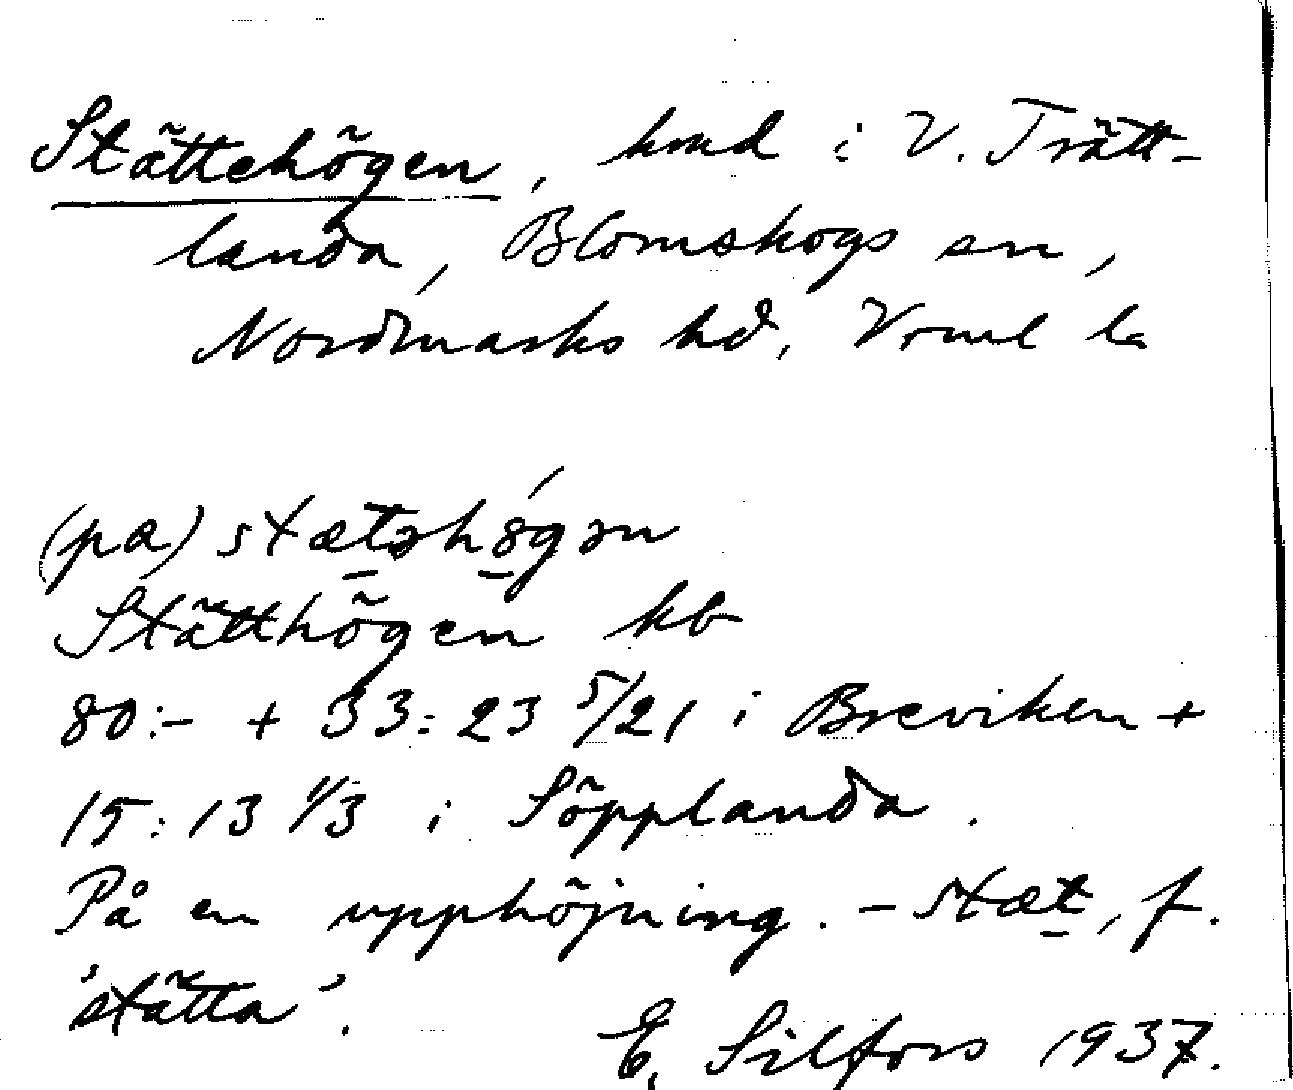 Stättehögen, hmd i V. Trätt-
landa, Blomskogs sn,
Nordmarks hd, Vrml la
(pa) stætəhögən
Stätthögen kb
80:- + 33:23 5/21 i Breviken +
15:13 1/3 i Söpplanda.
På en upphöjning. - stæt, f.
'stätta'.
E. Silfors 1937.